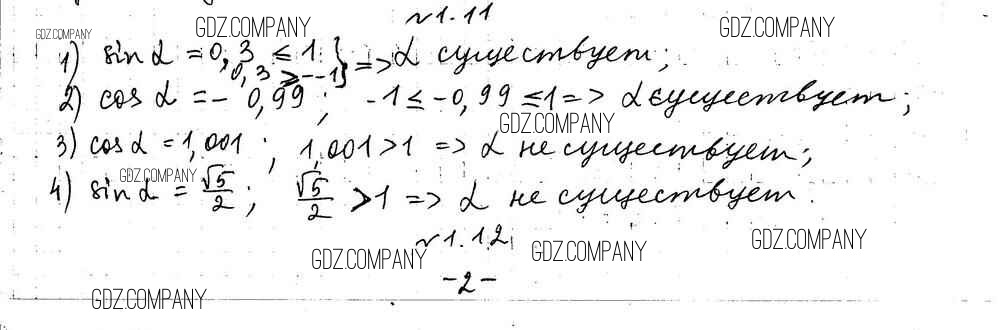 №1.11
GDZ.COMPANY GDZ.COMPANY GDZ.COMPANY
1) sin α = 0,3 ≤ 1 } => α существует;
0,3 ≥ -1
2) cos α = - 0,99; -1 ≤ -0,99 ≤ 1 => α существует;
GDZ.COMPANY
3) cos α = 1,001; 1,001 > 1 => α не существует;
GDZ.COMPANY
4) sin α = √5/2; √5/2 > 1 => α не существует.
№1.12
GDZ.COMPANY GDZ.COMPANY GDZ.COMPANY
-2-
GDZ.COMPANY